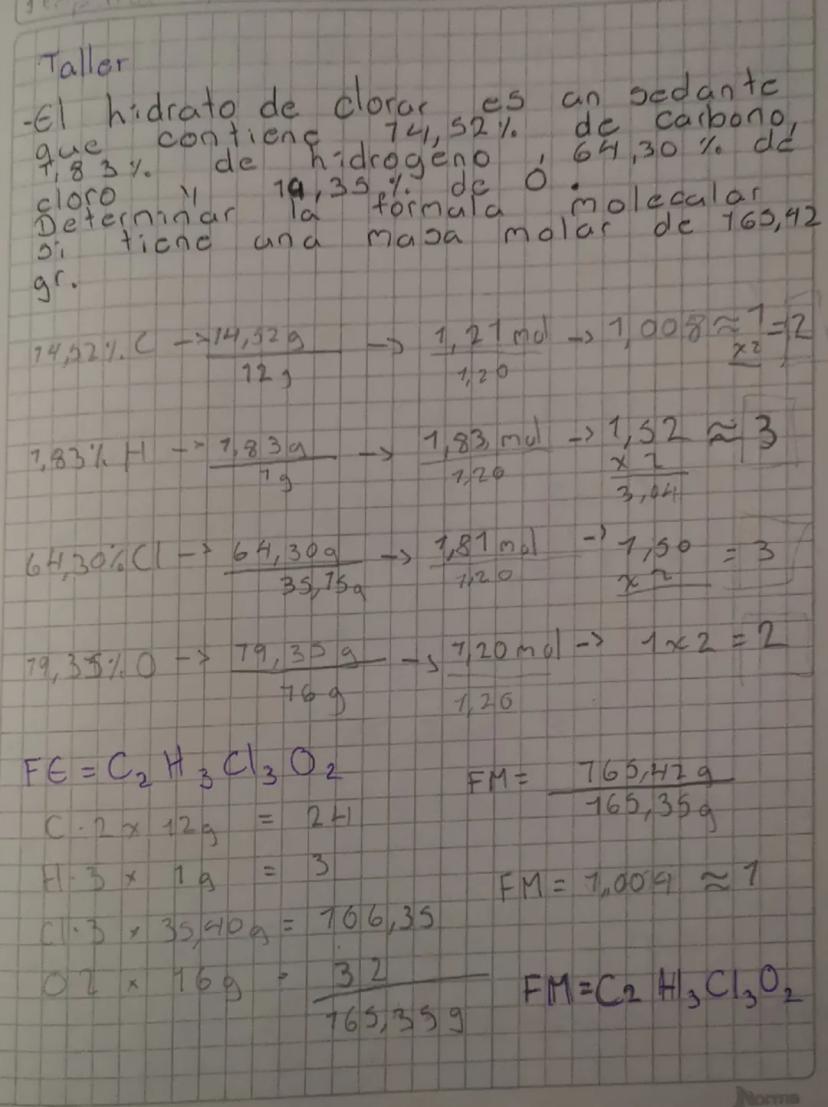 Taller
-El hidrato de clorar es un sedante
que contiene 14,52% de carbono,
1,83% de hidrogeno, 64,30% de
cloro y 19,35% de O.
Determinar la formula molecular
si tiene una masa molar de 165,42
gr.
14,52% C -> 14,52g / 12g -> 1,21 mol / 1,20 -> 1,008 ≈ 1 x2 = 2
1,83% H -> 1,83g / 1g -> 1,83 mol / 1,20 -> 1,52 x 2 3,04 ≈ 3
64,30% Cl -> 64,30g / 35,75g -> 1,81 mol / 1,20 -> 1,50 x 2 = 3
19,35% O -> 19,35g / 16g -> 1,20 mol / 1,20 -> 1x2 = 2
FE = C2 H3 Cl3 O2
C·2 x 12g = 24
H·3 x 1g = 3
Cl·3 x 35,40g = 106,35
O2 x 16g = 32
165,35g
FM = 165,42g / 165,35g
FM = 1,004 ≈ 1
FM = C2 H3 Cl3 O2
Norma